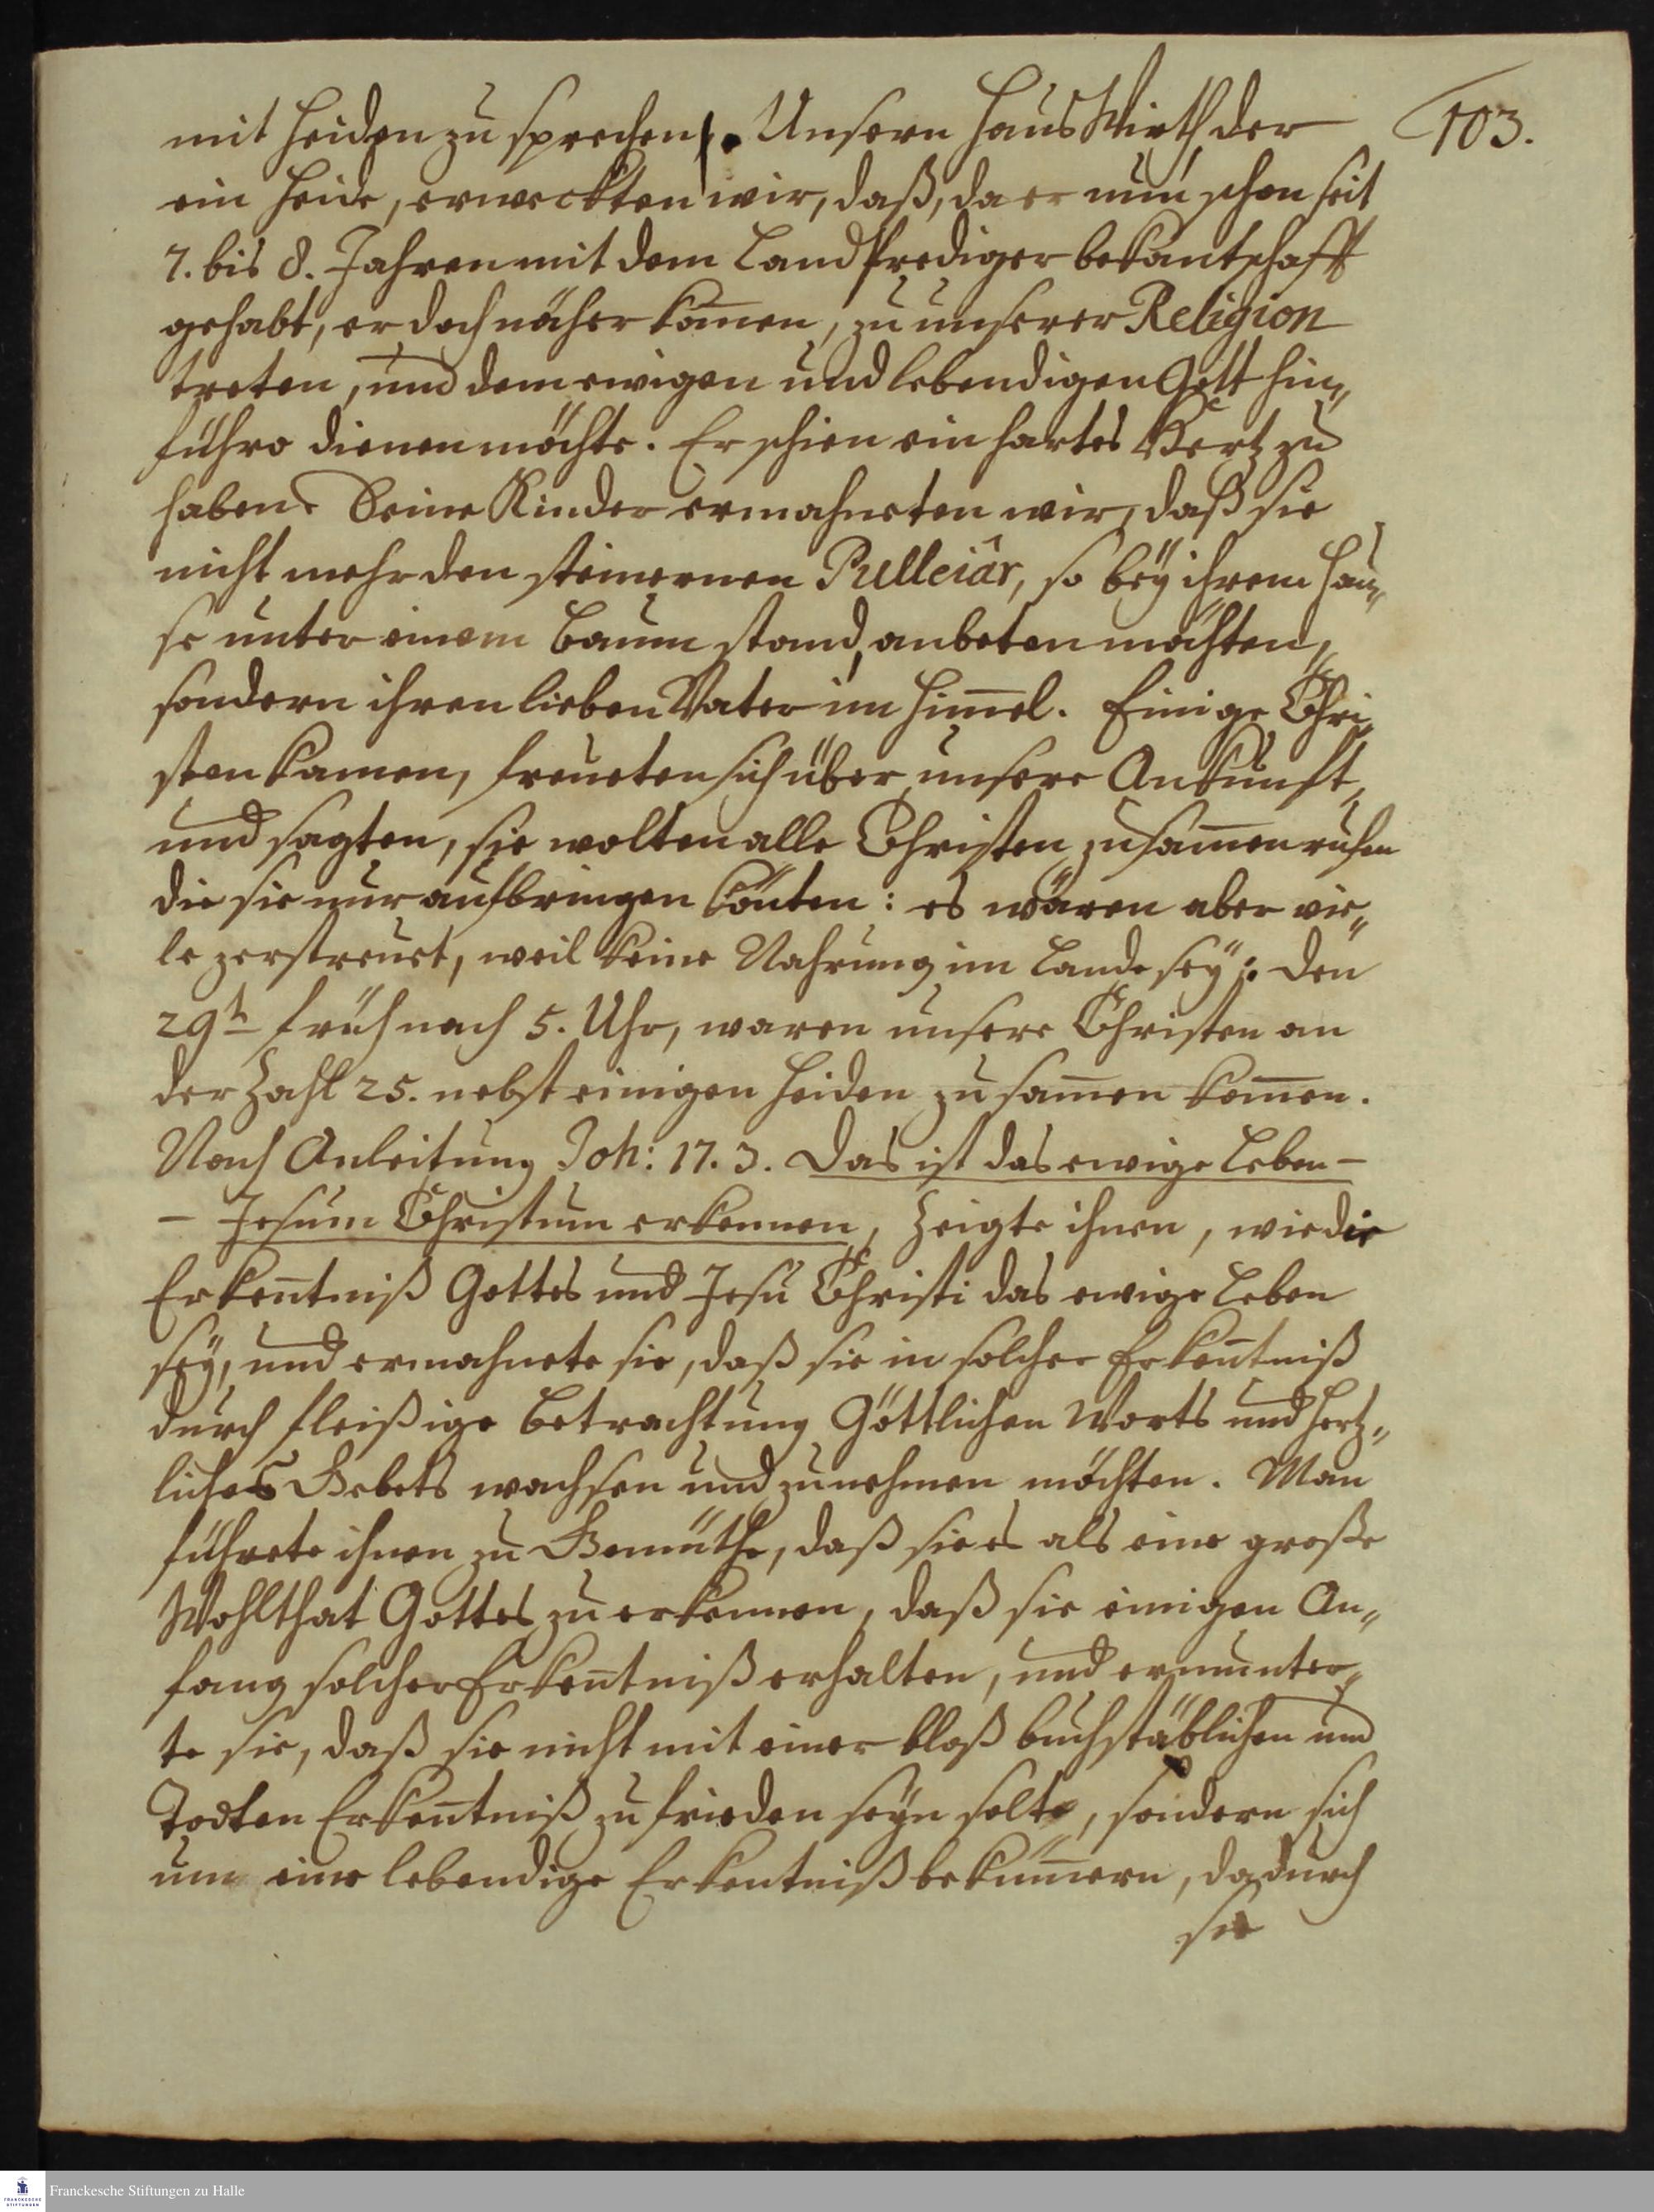 103.
mit Heiden zu sprechen. Unsern Haus Wirth der
ein Heide, erweckten wir, daß, da er nun schon seit
7. bis 8. Jahren mit dem Landprediger bekantschafft
gehabt, er doch näher kom̄en, zu unserer Religion
tretten, und dem ewigen und lebendigen Gott hin„
führo dienen möchte. Er schien ein hartes Hertz zu
haben. Seine Kinder ermahneten wir, daß sie
nicht mehr den steinernen Pulleiâr, so bey ihrem Hau„
se unter einem Baum stand, anbeten möchten,
sondern ihren lieben Vater im Him̄el. Einige Chri„
sten kamen, freueten sich über unsere Ankunft,
und sagten, sie wolten alle Christen zusam̄en rufen
die sie nur aufbringen könten: es wären aber vie„
le zerstreuet, weil keine Nahrung im Lande sey. Den
29t früh nach 5. Uhr, waren unsere Christen an
der Zahl 25. nebst einigen Heiden zusam̄en kom̄en.
Nach Anleitung Joh: 17. 3. Das ist das ewige Leben –
– Jesum Christum erkennen, zeigte ihnen, wie die
Erken̄tniß Gottes und Jesu Christi das ewige Leben
sey, und ermahnete sie, daß sie in solcher Erken̄tniß
durch fleißige Betrachtung Göttlichen Worts und Hertz„
liches Gebets wachsen und zunehmen möchten. Man
führete ihnen zu Gemüthe, daß sie es als eine große
Wohlthat Gottes zu erkennen, daß sie einigen An„
fang solcher Erken̄tniß erhalten, und ermunter„
te sie, daß sie nicht mit einer bloß buchstäblichen und
Todten Erken̄tniß zu frieden seyn solte, sondern sich
um eine lebendige Erkentniß beküm̄ern, dadurch
sie
Franckesche Stiftungen zu Halle
FRANCKESCHE
STIFTUNGEN